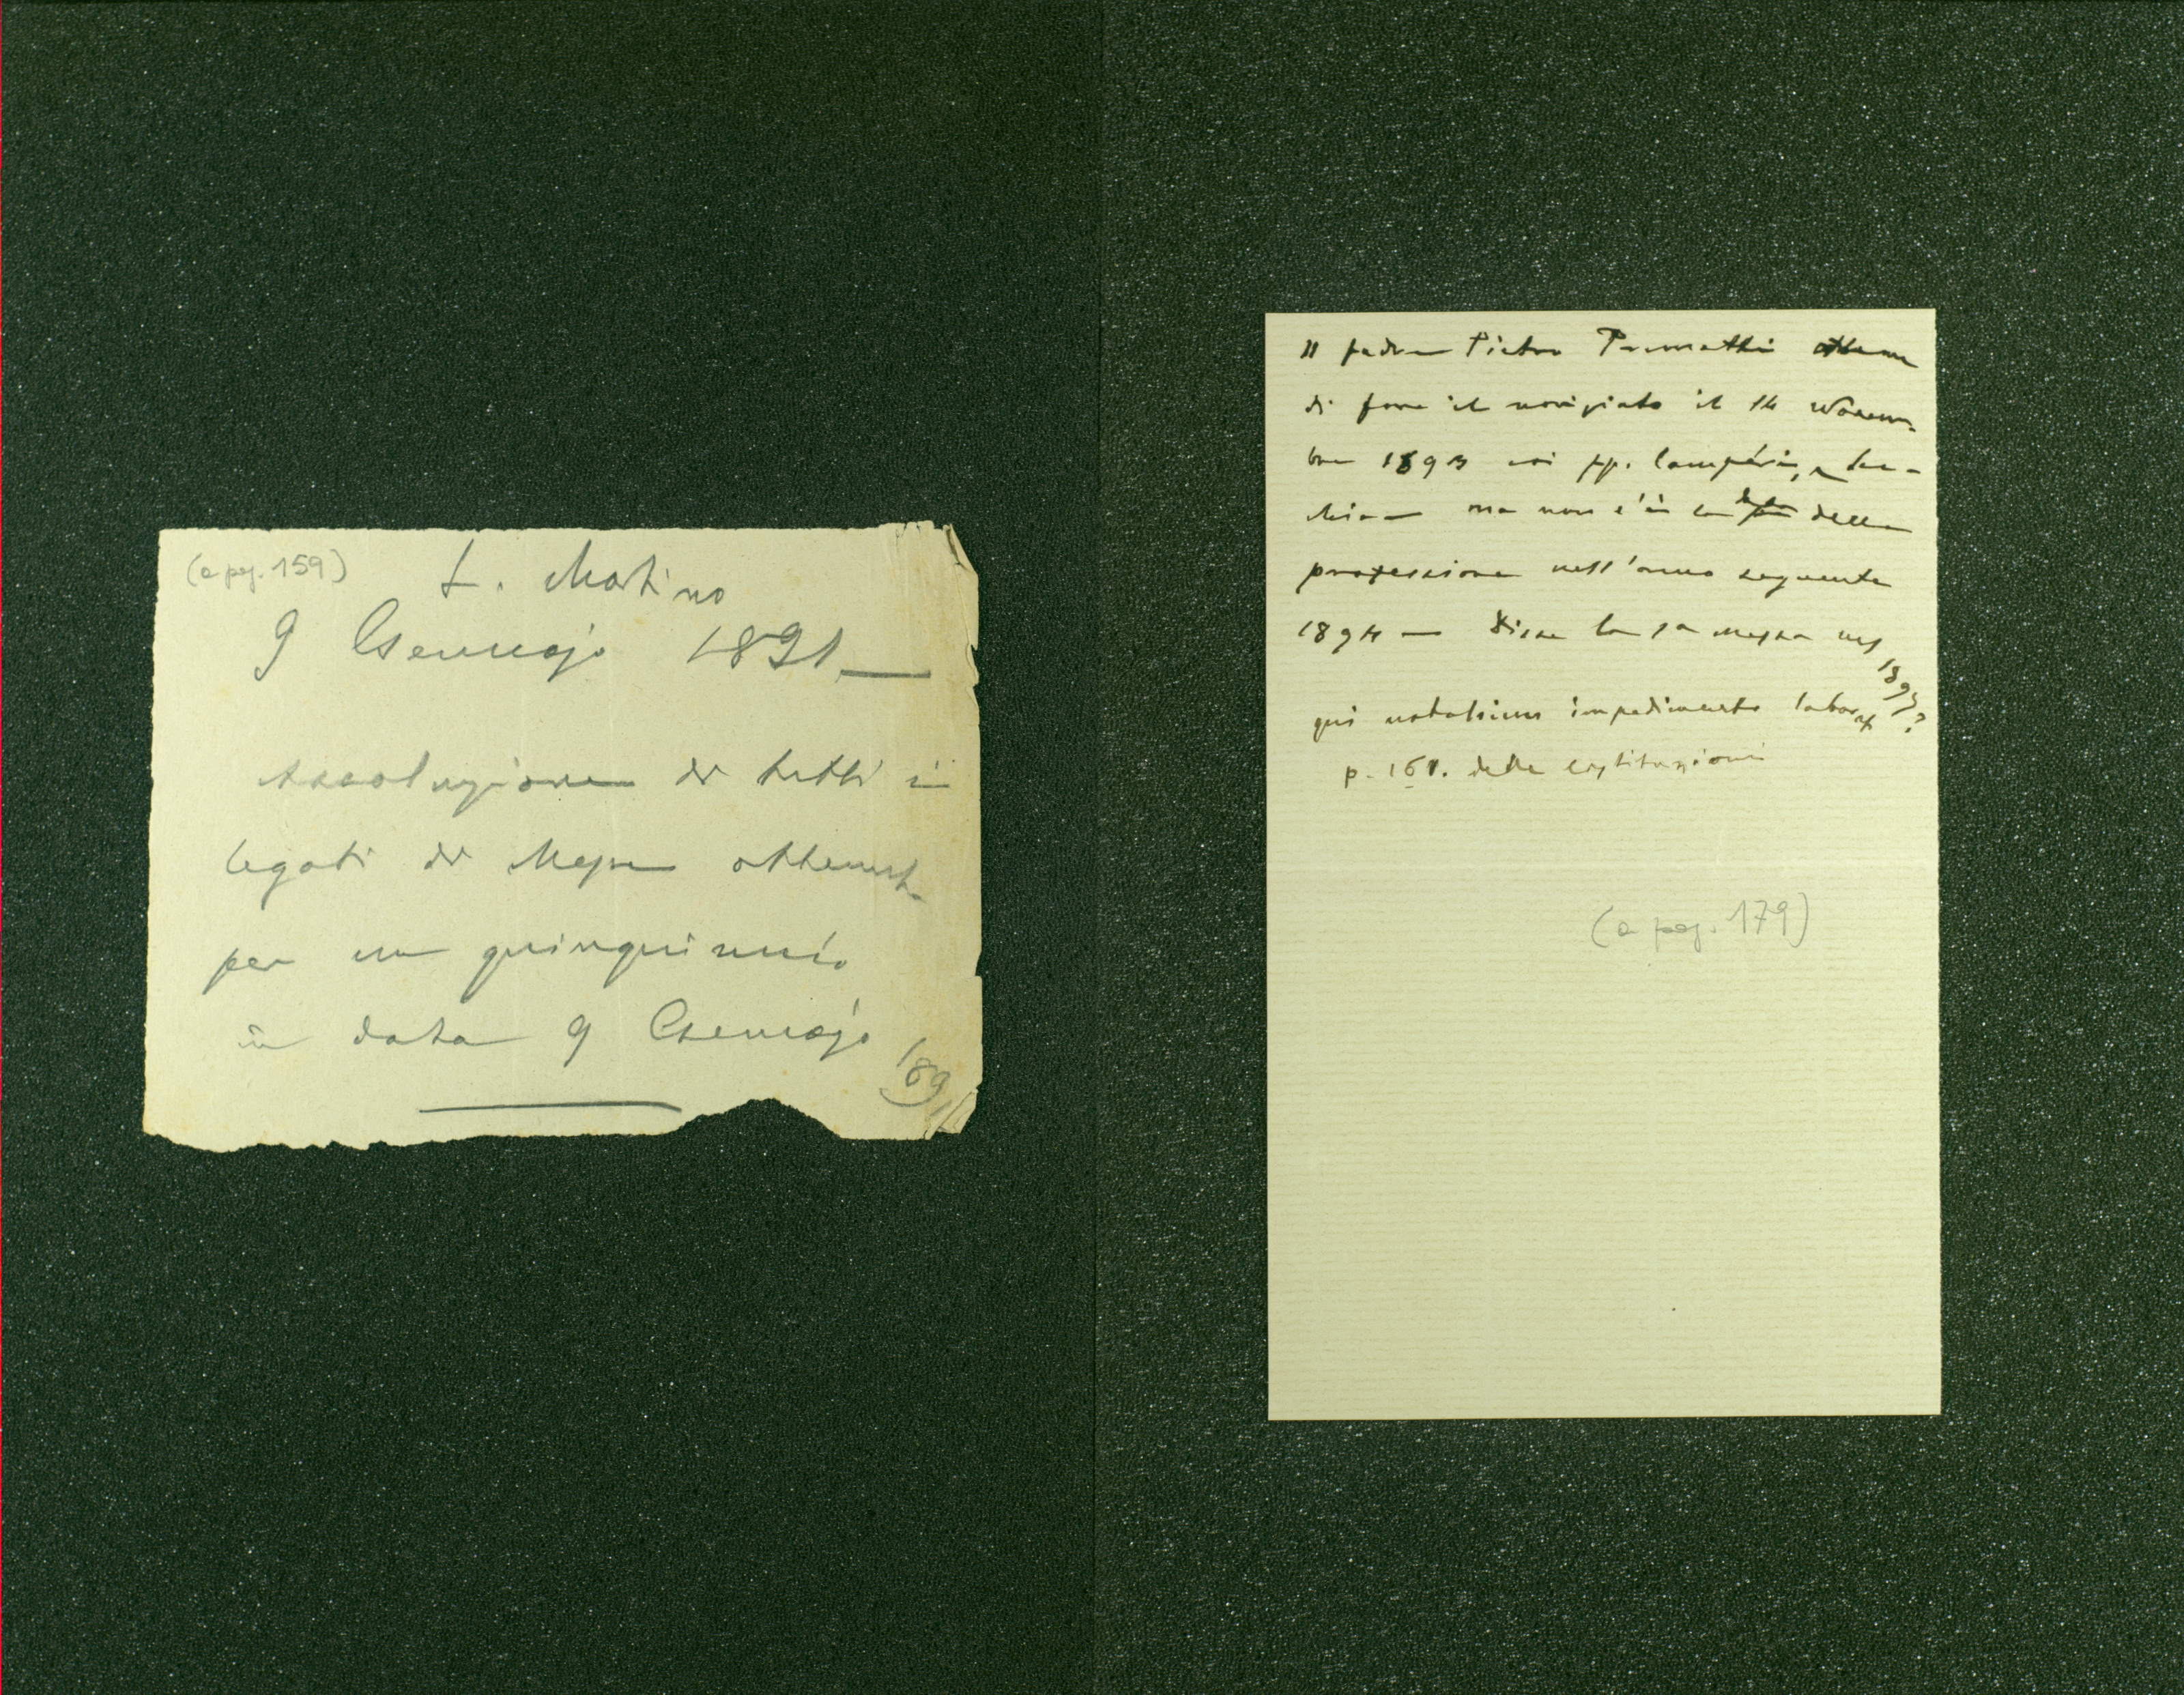 (a pag. 159)
S. Martino
9 Gennajo 1891 —
Assoluzione di tutti i
legati di Messe ottenuta
per un quinquinnio
in data 9 Gennajo
1891
Il padre Pietro ottenne
di fare il noviziato il 14 Novem-
bre 1893 coi pp. Lampérin, e
ma non c'è la data della
professione nell'anno seguente
1894 — Disse la 1a messa nel
1895?
qui notabium impedimento
p. 161. delle costituzioni
(a pag. 179)